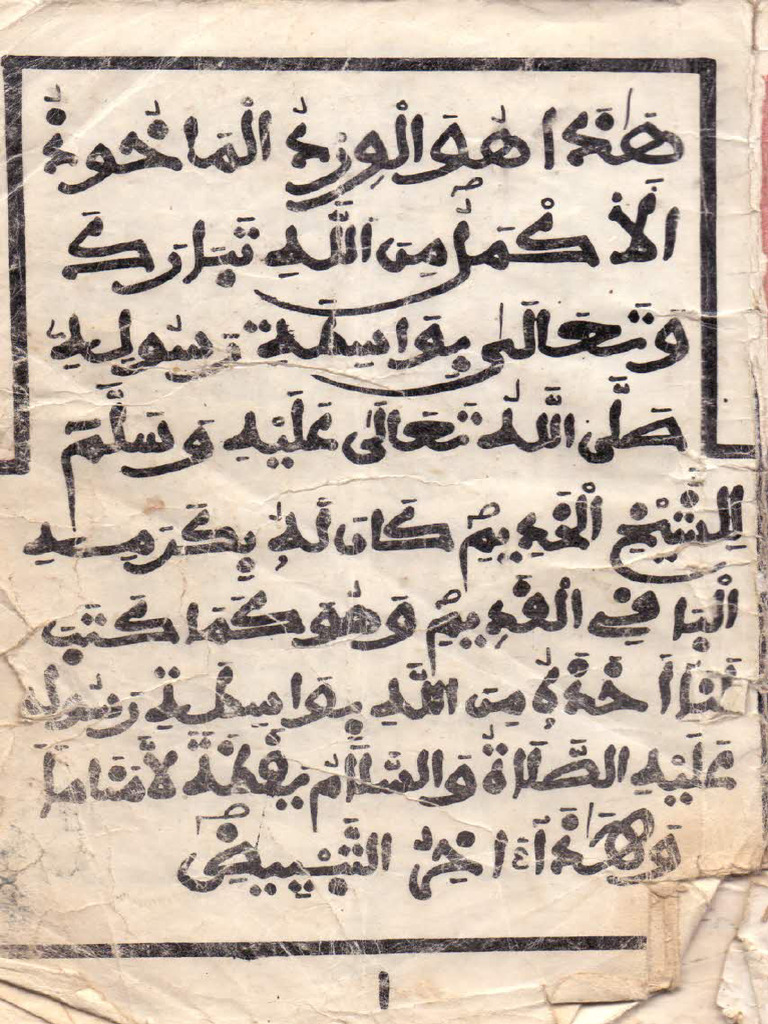 هَٰذَا هُوَ الْوِرْدُ الْمَاخُوذُ
الَاكْمَلُ مِنَ اللَّهِ تَبَارَكَ
وَتَعَالَىٰ بِوَاسِطَةِ رَسُولِهِ
صَلَّى اللَّهُ تَعَالَىٰ عَلَيْهِ وَسَلَّمَ
لِلشَّيْخِ الْخَدِيمِ كَانَ لَهُ بِكَرَمِهِ
الْبَافِي الْفَدِيمُ وَهُوَ كَمَا كَتَبَ
لَنَا أَخَذَهُ مِنَ اللَّهِ بِوَاسِطَةِ رَسُولِهِ
عَلَيْهِ الصَّلَاةُ وَالسَّلَامُ يَفْظَةً لَا مَنَاماً
وَهَٰذَا ءَاخِرُ التَّبْيِيضِ
١